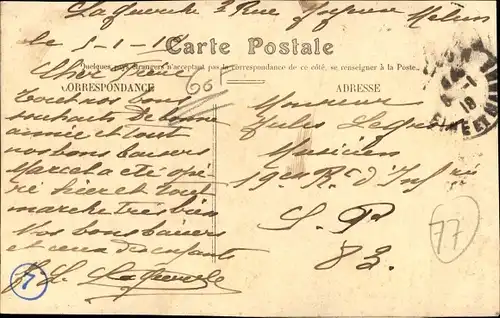 Rue Melun
le 5-1-18
Carte Postale
Quelques pays étrangers n'acceptant pas la correspondance de ce côté, se renseigner à la Poste.
CORRESPONDANCE
ADRESSE
60
Cher Frère
Tout nos bons
souhaits de bonne
année et tout
nos bons baisers
Marcel a été opé
ré hier et tout
marche très bien
Vos bons baisers
et ceux des enfants
Monsieur
Jules
Musicien
19em Rt d'Inf rie
S. P.
83.
77
7
SEINE ET